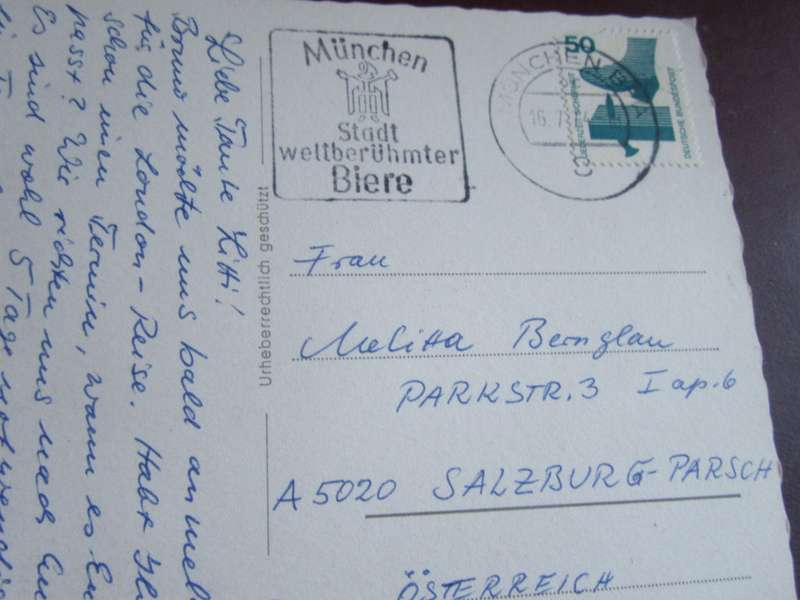 Liebe Tante Litti!
Bruno möchte uns bald anmel
für die London-Reise. Habt Ih
schon einen Termin, wann es En
passt? Wir richten uns nach Eu
Es sind wohl 5 Tage
München
Stadt
weltberühmter
Biere
MÜNCHEN
16.7.
50
DEUTSCHE BUNDESPOST
Urheberrechtlich geschützt
Frau
Melitta Bernglau
PARKSTR. 3 I ap. 6
A 5020 SALZBURG-PARSCH
ÖSTERREICH